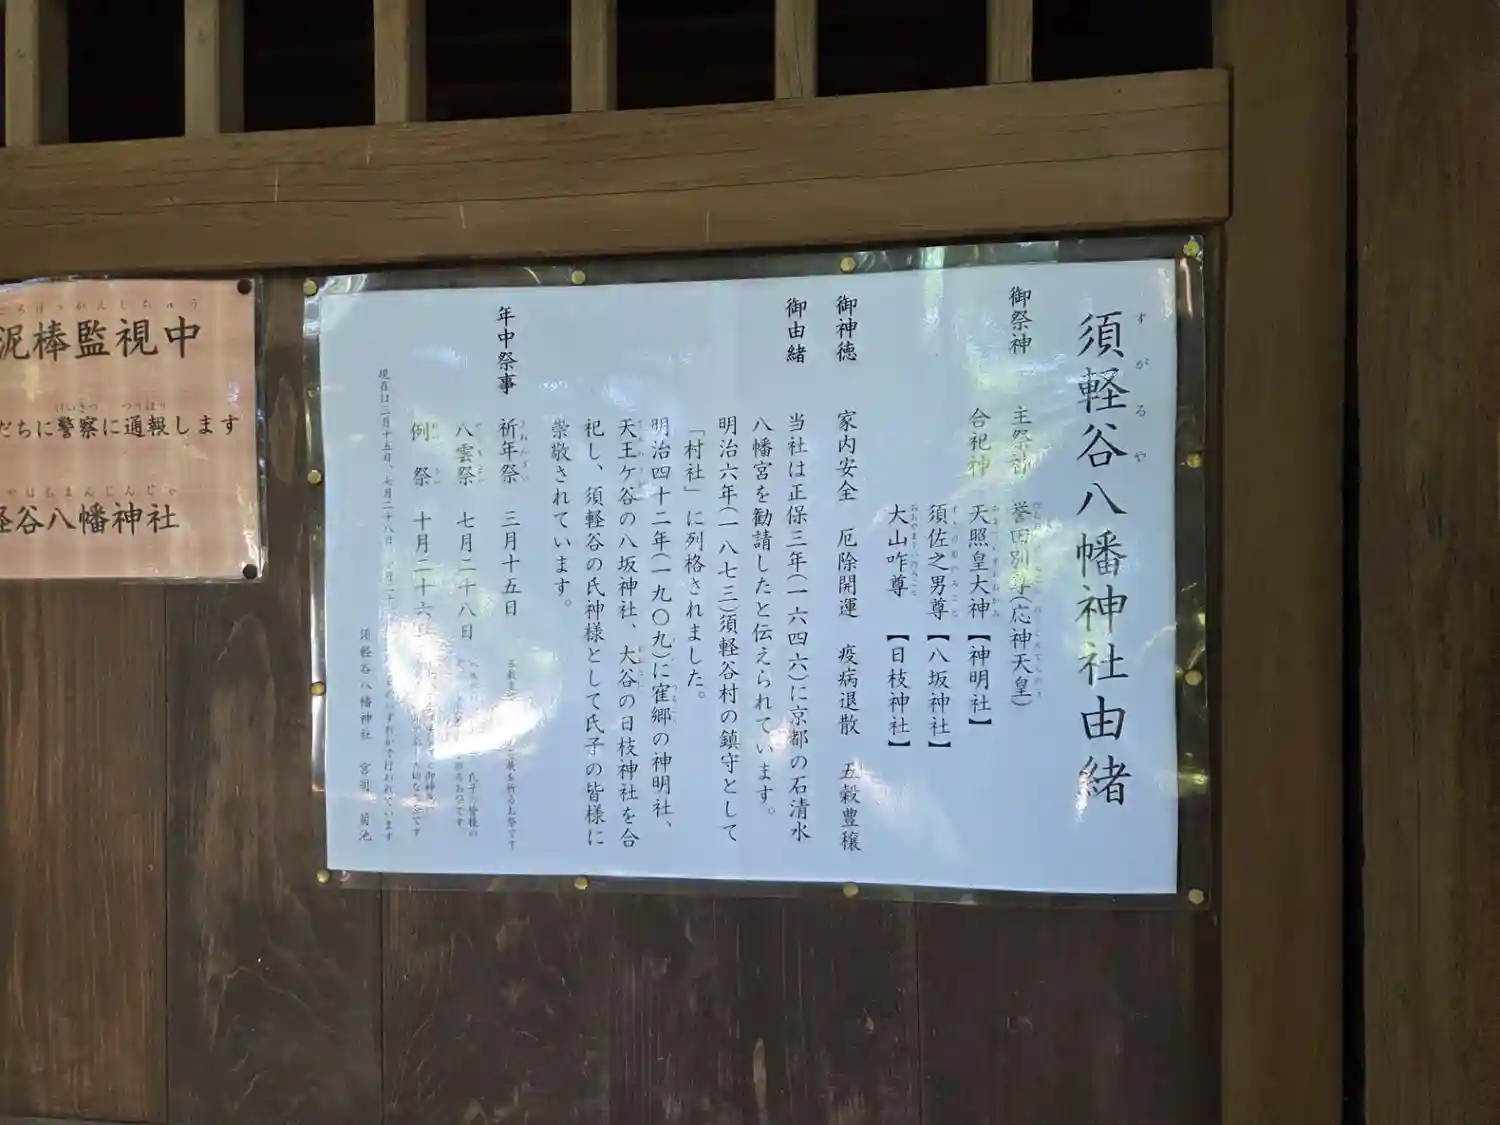 須軽谷八幡神社由緒
すがるや
御祭神 主祭神 誉田別尊(応神天皇)
合祀神 天照皇大神【神明社】
須佐之男尊【八坂神社】
大山咋尊【日枝神社】
御神徳 家内安全 厄除開運 疫病退散 五穀豊穣
御由緒
当社は正保三年(一六四六)に京都の石清水
八幡宮を勧請したと伝えられています。
明治六年(一八七三)須軽谷村の鎮守として
「村社」に列格されました。
明治四十二年(一九〇九)に窪郷の神明社、
天王ケ谷の八坂神社、大谷の日枝神社を合
祀し、須軽谷の氏神様として氏子の皆様に
崇敬されています。
年中祭事 祈年祭 三月十五日 を祈るお祭です
八雲祭 七月二十八日 氏子の皆様の
お祭です
例祭 十月二十六日
です
現在は三月十五日、七月二十八日、いずれかで行われています
須軽谷八幡神社 宮司 菊池
泥棒監視中
だちに警察に通報します
けいさつ つうほう
軽谷八幡神社
やはちまんじんじゃ